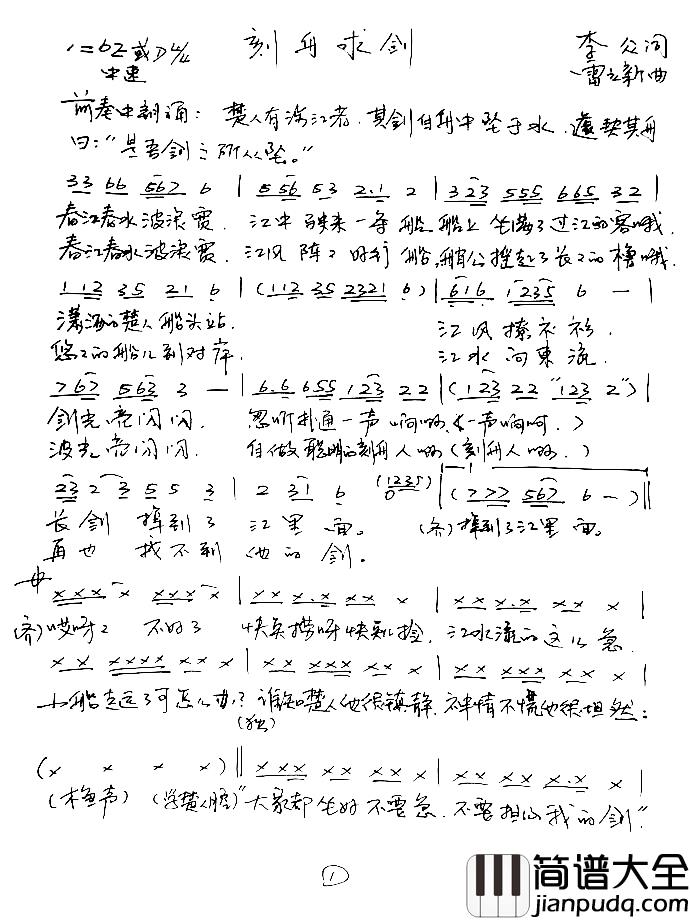 刻舟求剑
1=bE或D 4/4
中速
李众词
雷立新曲
前奏中朗诵：楚人有涉江者，其剑自舟中坠于水，遽契其舟
曰：“是吾剑之所从坠。”
33 66 567 6 | 5 56 53 2·1 2 | 3 23 555 665 32 |
春江春水波浪宽，江中驶来一条船，船上坐满了过江的客哦。
春江春水波浪宽，江风阵2时行船，船公摇起了长2的橹哦。
1 12 35 21 6 | (112 35 2321 6) | 616 1235 6 — |
潇洒的楚人船头站， 江风撩衣衫，
悠2的船儿到对岸， 江水向东流，
767 563 3 — | 6·6 655 123 22 | (123 22 "123 2") |
剑光亮闪闪， 忽听扑通一声响呦（一声响呵，）
波光亮闪闪， 自做聪明的刻舟人呦（刻舟人呦，）
23 2 3 5 5 3 | 2 31 6 (1235) 0 | (777 567 6 —) ‖
长剑掉到了江里面。（齐）掉到了江里面。
再也找不到他的剑。
xxx x xxx x | xx x·x xx x | xx x·x xx x |
（齐）哎呀2 不好了 快点捞呀快点捡，江水流的这儿急，
xx xxxx xx x | xx xxx xx x | xx xxx xx x |
小船走远了可怎么办？谁知楚人他很镇静，衣神情不慌他很坦然：
（独）
(x x x x) ‖ xx xxx xx xx x | xx xx xx x·x x |
（木鱼声）（学楚人腔）“大家都坐好不要急，不要担心我的剑”
1
简谱大全
jianpudq.com